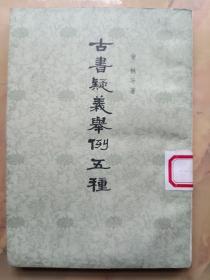 古書疑義舉例五種
俞樾等著